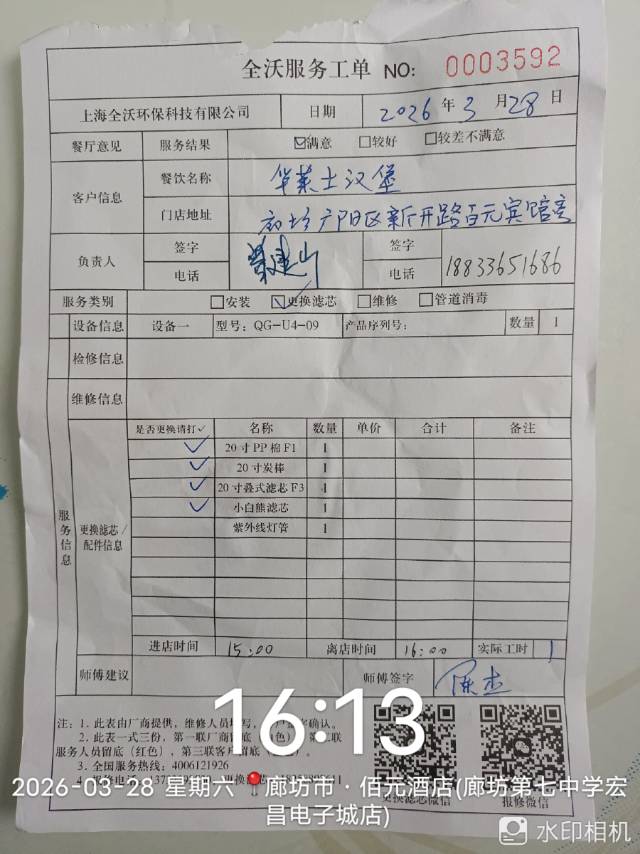 全沃服务工单 NO: 0003592
上海全沃环保科技有限公司 日期 2026年3月28日
餐厅意见 服务结果 ☑满意 □较好 □较差不满意
客户信息 餐饮名称 华莱士汉堡
门店地址 廊坊广阳区新开路百元宾馆旁
负责人 签字 签字
电话 电话 18833651686
服务类别 □安装 ☑更换滤芯 □维修 □管道消毒
设备信息 设备一 型号: QG-U4-09 产品序列号: 数量 1
检修信息
维修信息
服务信息
更换滤芯/配件信息
是否更换请打✓ 名称 数量 单价 合计 备注
✓ 20寸PP棉F1 1
✓ 20寸炭棒 1
✓ 20寸叠式滤芯F3 1
✓ 小白熊滤芯 1
紫外线灯管 1
进店时间 15:00 离店时间 16:00 实际工时 1
师傅建议 师傅签字 陈杰
注: 1. 此表由厂商提供, 维修人员填写, 确认。
2. 此表一式三份, 第一联厂商留底
服务人员留底(红色), 第三联客户留底
3. 全国服务热线: 4006121926
更换滤芯微信 报修微信
16:13
2026-03-28 星期六 廊坊市·佰元酒店(廊坊第七中学宏
昌电子城店)
水印相机